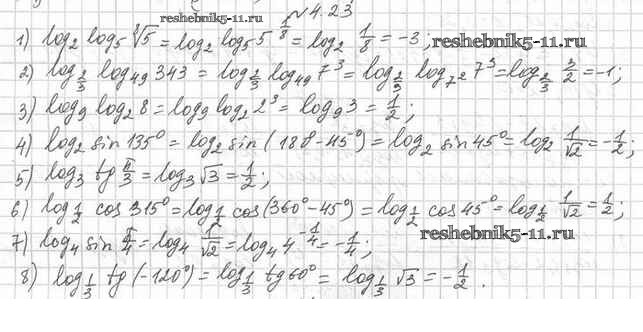 №4.23
reshebnik5-11.ru
1) log₂ log₅ ⁸√5 = log₂ log₅ 5^(1/8) = log₂ 1/8 = -3; reshebnik5-11.ru
2) log_(2/3) log₄₉ 343 = log_(2/3) log₄₉ 7³ = log_(2/3) log_(7²) 7³ = log_(2/3) 3/2 = -1;
3) log₉ log₂ 8 = log₉ log₂ 2³ = log₉ 3 = 1/2;
4) log₂ sin 135° = log₂ sin (180-45°) = log₂ sin 45° = log₂ 1/√2 = -1/2;
5) log₃ tg π/3 = log₃ √3 = 1/2;
6) log_(1/2) cos 315° = log_(1/2) cos (360°-45°) = log_(1/2) cos 45° = log_(1/2) 1/√2 = 1/2;
7) log₄ sin π/4 = log₄ 1/√2 = log₄ 4^(-1/4) = -1/4; reshebnik5-11.ru
8) log_(1/3) tg (-120°) = log_(1/3) tg 60° = log_(1/3) √3 = -1/2.